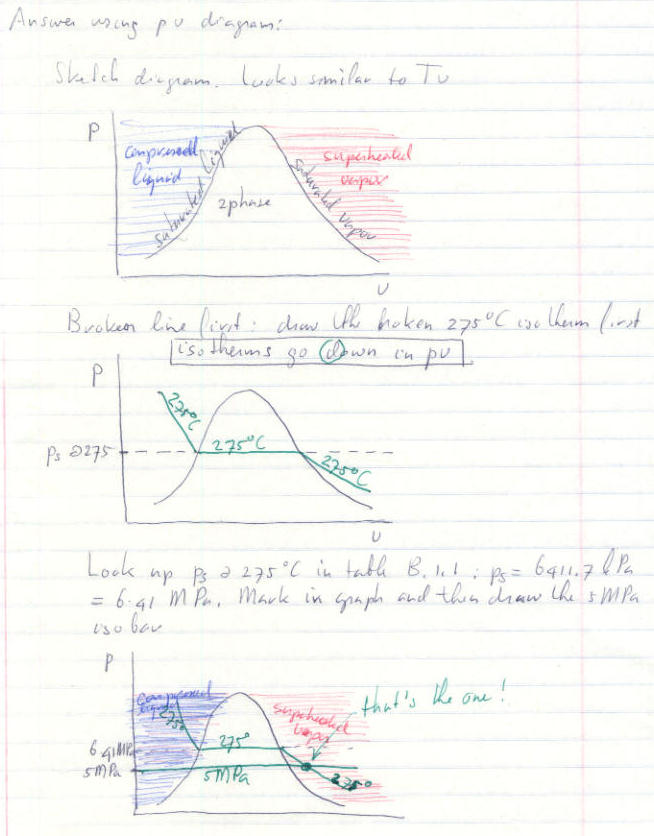 Answer using pv diagram:
Sketch diagram. Looks similar to Tv
P
compressed
liquid
saturated liquid
2 phase
saturated vapor
superheated
vapor
v
Broken line first: draw the broken 275°C isotherm first
isotherms go down in pv
P
275°C
ps @275
275°C
275°C
v
Look up ps @ 275°C in table B.1.1: ps = 6411.7 kPa
= 6.41 MPa. Mark in graph and then draw the 5MPa
isobar
P
compressed
liquid
275°
275°
superheated
vapor
that's the one!
6.41MPa
5MPa
5MPa
275°